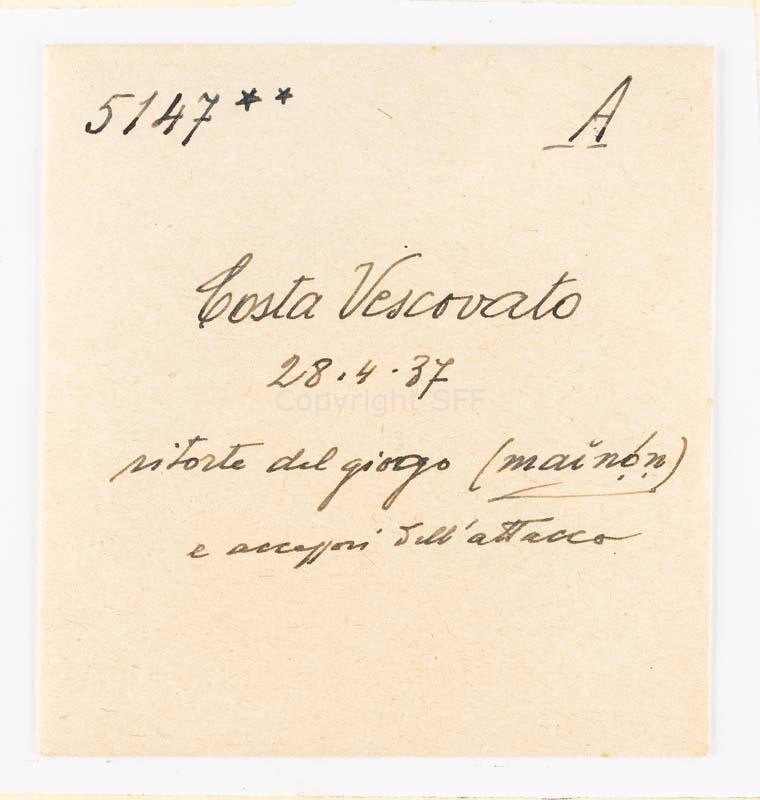 5147** A
Costa Vescovato
28.4.37
Copyright SFF
ritorte del giogo (maĭnọ́ṇ)
e accessori dell'attacco